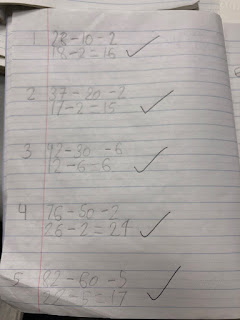 1 28-10-2
18-2=16
2 37-20-2
17-2=15
3 42-30-6
12-6-6
4 76-50-2
26-2=24
5 82-60-5
22-5=17